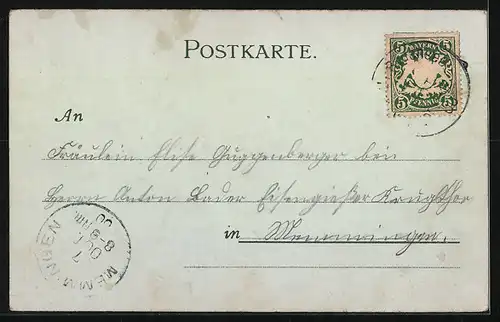 POSTKARTE.
BAYERN
5 5
5 PFENNIG 5
An
Fräulein Elise Guggenberger bei
Herrn Anton Bader Eisengießer Krugsthor
in Memmingen.
MEMMINGEN
7
OCT
8-9 NM.
00